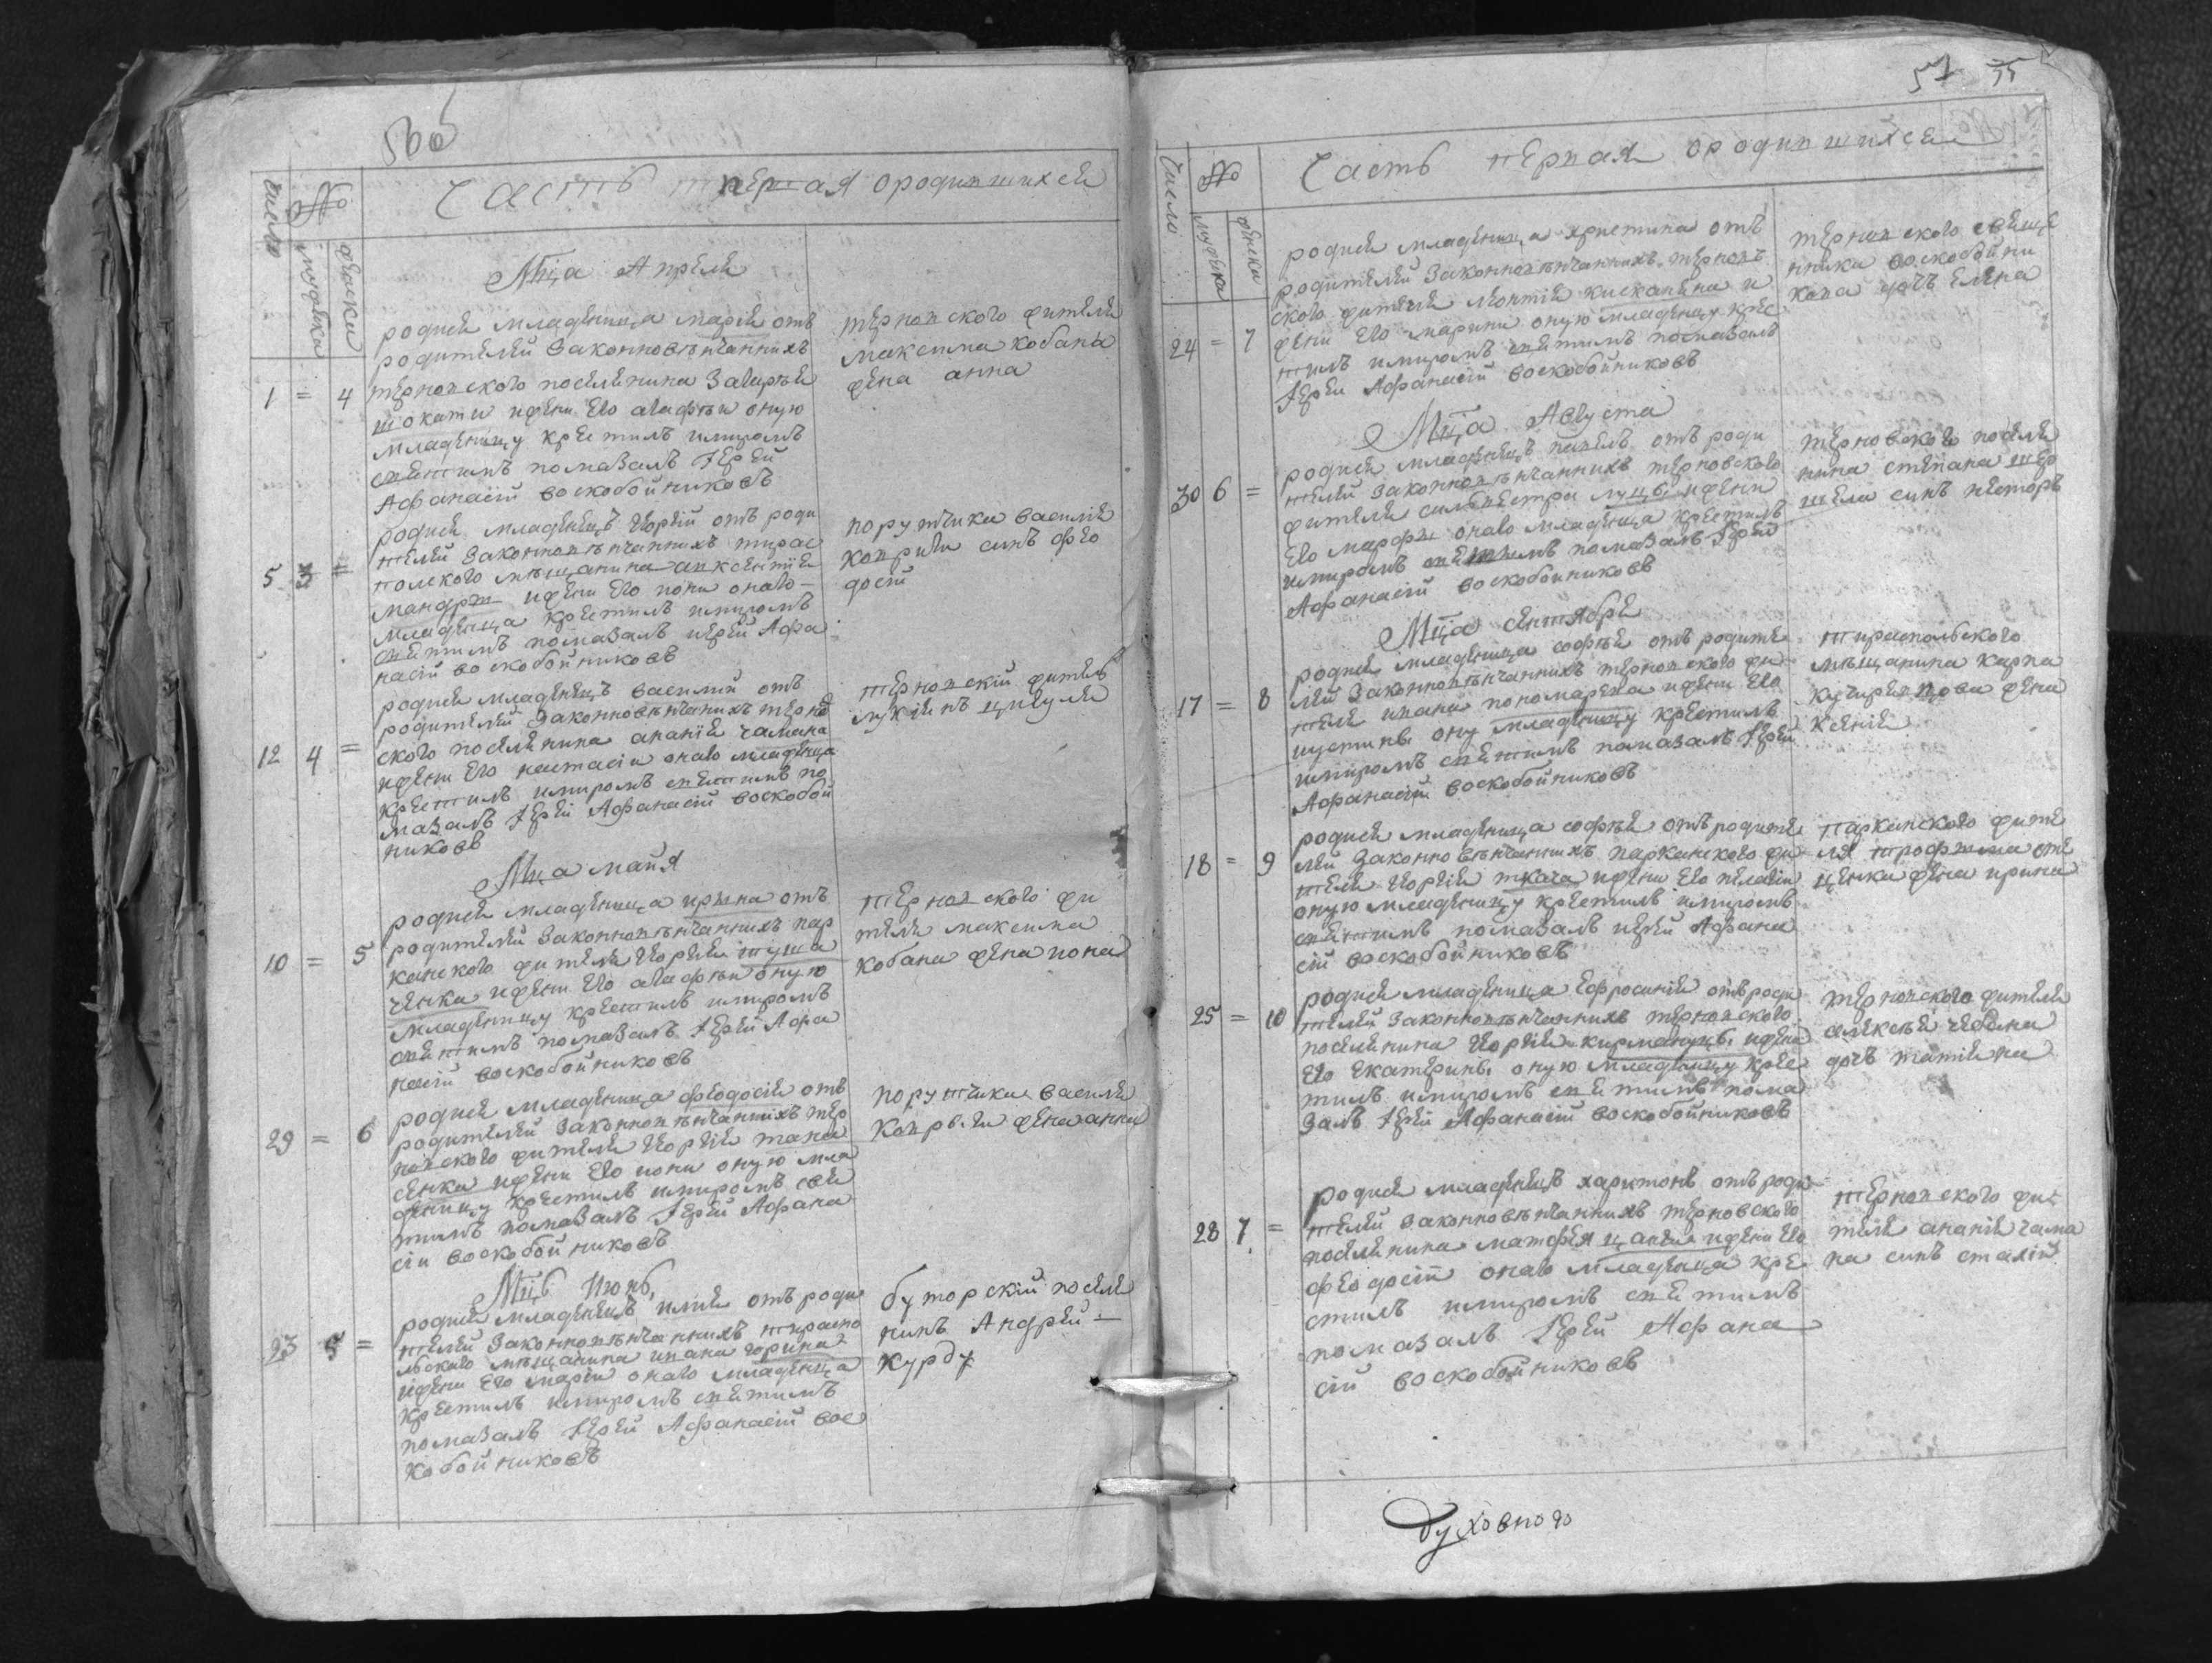 566
Число
№
мужеска
женски
Часть первая ородившихся
Мца Апреля
родися младеница мария отъ
родителей законновѣнчанныхъ
терновского поселянина захарѣя
1 = 4
шокати ижени его агафѣи оную
младеницу крестилъ имиромъ
святимъ помазалъ Iерей
Афанасiй воскобойниковъ
терновского жителя
максима кобана
жена анна
родися младенецъ георгiй отъ роди
телей законновѣнчанныхъ тирас
полского мѣщанина авксентiя
5 3 =
мандри ижени его иони онаго
младенца крестилъ имиромъ
святимъ помазалъ иерей Афа
насiй воскобойниковъ
порутчика василiя
ковриги синъ фео
досiй
родися младенецъ василий отъ
родителей законновѣнчанихъ тернов
ского поселянина ананiя чамана
12 4 =
ижени его настасiи онаго младенца
крестилъ имиромъ святимъ по
мазалъ Iерей Афанасiй воскобой
никовъ
терновскiй житель
лукiянъ цигуля
Мца майя
родися младеница ирина отъ
родителей законновѣнчанныхъ пар
канского жителя георгия туша
10 = 5
ченка ижени его агафѣи оную
младеницу крестилъ имиромъ
святимъ помазалъ Iерей Афа
насiй воскобойниковъ
терновского жи
теля максима
кобана жена иона
родися младеница феодосiя отъ
родителей законновѣнчанныхъ тер
новского жителя георгiя тана
29 = 6
сенка ижени его иони оную мла
деницу крестилъ имиромъ свя
тимъ помазалъ Iерей Афана
сiй воскобойниковъ
порутчика василя
ковриги жена анна
Мцъ Июнь
родися младенецъ илия отъ роди
телей законновѣнчанныхъ тираспо
льского мѣщанина ивана горина
23 5 =
ижени его марiи онаго младенца
крестилъ имиромъ святимъ
помазалъ Iерей Афанасiй вос
кобойниковъ
буторскiй поселя
нинъ Андрей
Курду
57 55
Число
№
мужеска
женски
Часть первая ородившихся
родися младеница христина отъ
родителей законновѣнчанныхъ тернов
ского жителя леонтiя кисканина и
24 = 7
жени его марини оную младеницу крес
тилъ имиромъ святимъ помазалъ
Iерей Афанасiй воскобойниковъ
терновского свяще
нника воскобойни
кова дочъ елена
Мца Августа
родися младенецъ павелъ отъ роди
телей законновѣнчанныхъ терновского
30 6 =
жителя силвестра луць ижени
его марфи онаго младенца крестилъ
имиромъ святимъ помазалъ Iерей
Афанасiй воскобойниковъ
терновского поселя
нина степана шер
шела синъ нестеръ
Мца сентября
родися младеница софѣя отъ родите
лей законновѣнчанныхъ терновского жи
17 = 8
теля ивана пономарева ижени его
иустины ону младеницу крестилъ
имиромъ святимъ помазалъ Iерей
Афанасiй воскобойниковъ
тираспольского
мѣщанина карпа
жена
Ксенiя
родися младеница софѣя отъ родите
лей законновѣнчанныхъ парканского жи
18 = 9
теля георгiя ткача ижени его пелагiи
оную младеницу крестилъ имиромъ
святимъ помазалъ иерей Афана
сiй воскобойниковъ
парканского жите
ля трофима сте
ценка жена ирина
родися младеница Ефросинiя отъ роди
телей законновѣнчанныхъ терновского
25 = 10
поселянина георгiя кирмануць ижени
его екатерины оную младеницу крес
тилъ имиромъ святимъ пома
залъ Iерей Афанасiй воскобойниковъ
терновского жителя
алексѣя чебана
дочъ татiяна
родися младенецъ харитонъ отъ роди
телей законновѣнчанныхъ терновского
28 7 =
поселянина матфея цапа ижени его
феодосiи онаго младенца кре
стилъ имиромъ святимъ
помазалъ Iерей Афана
сiй воскобойниковъ
терновского жи
теля ананiя чама
на синъ
Духовного